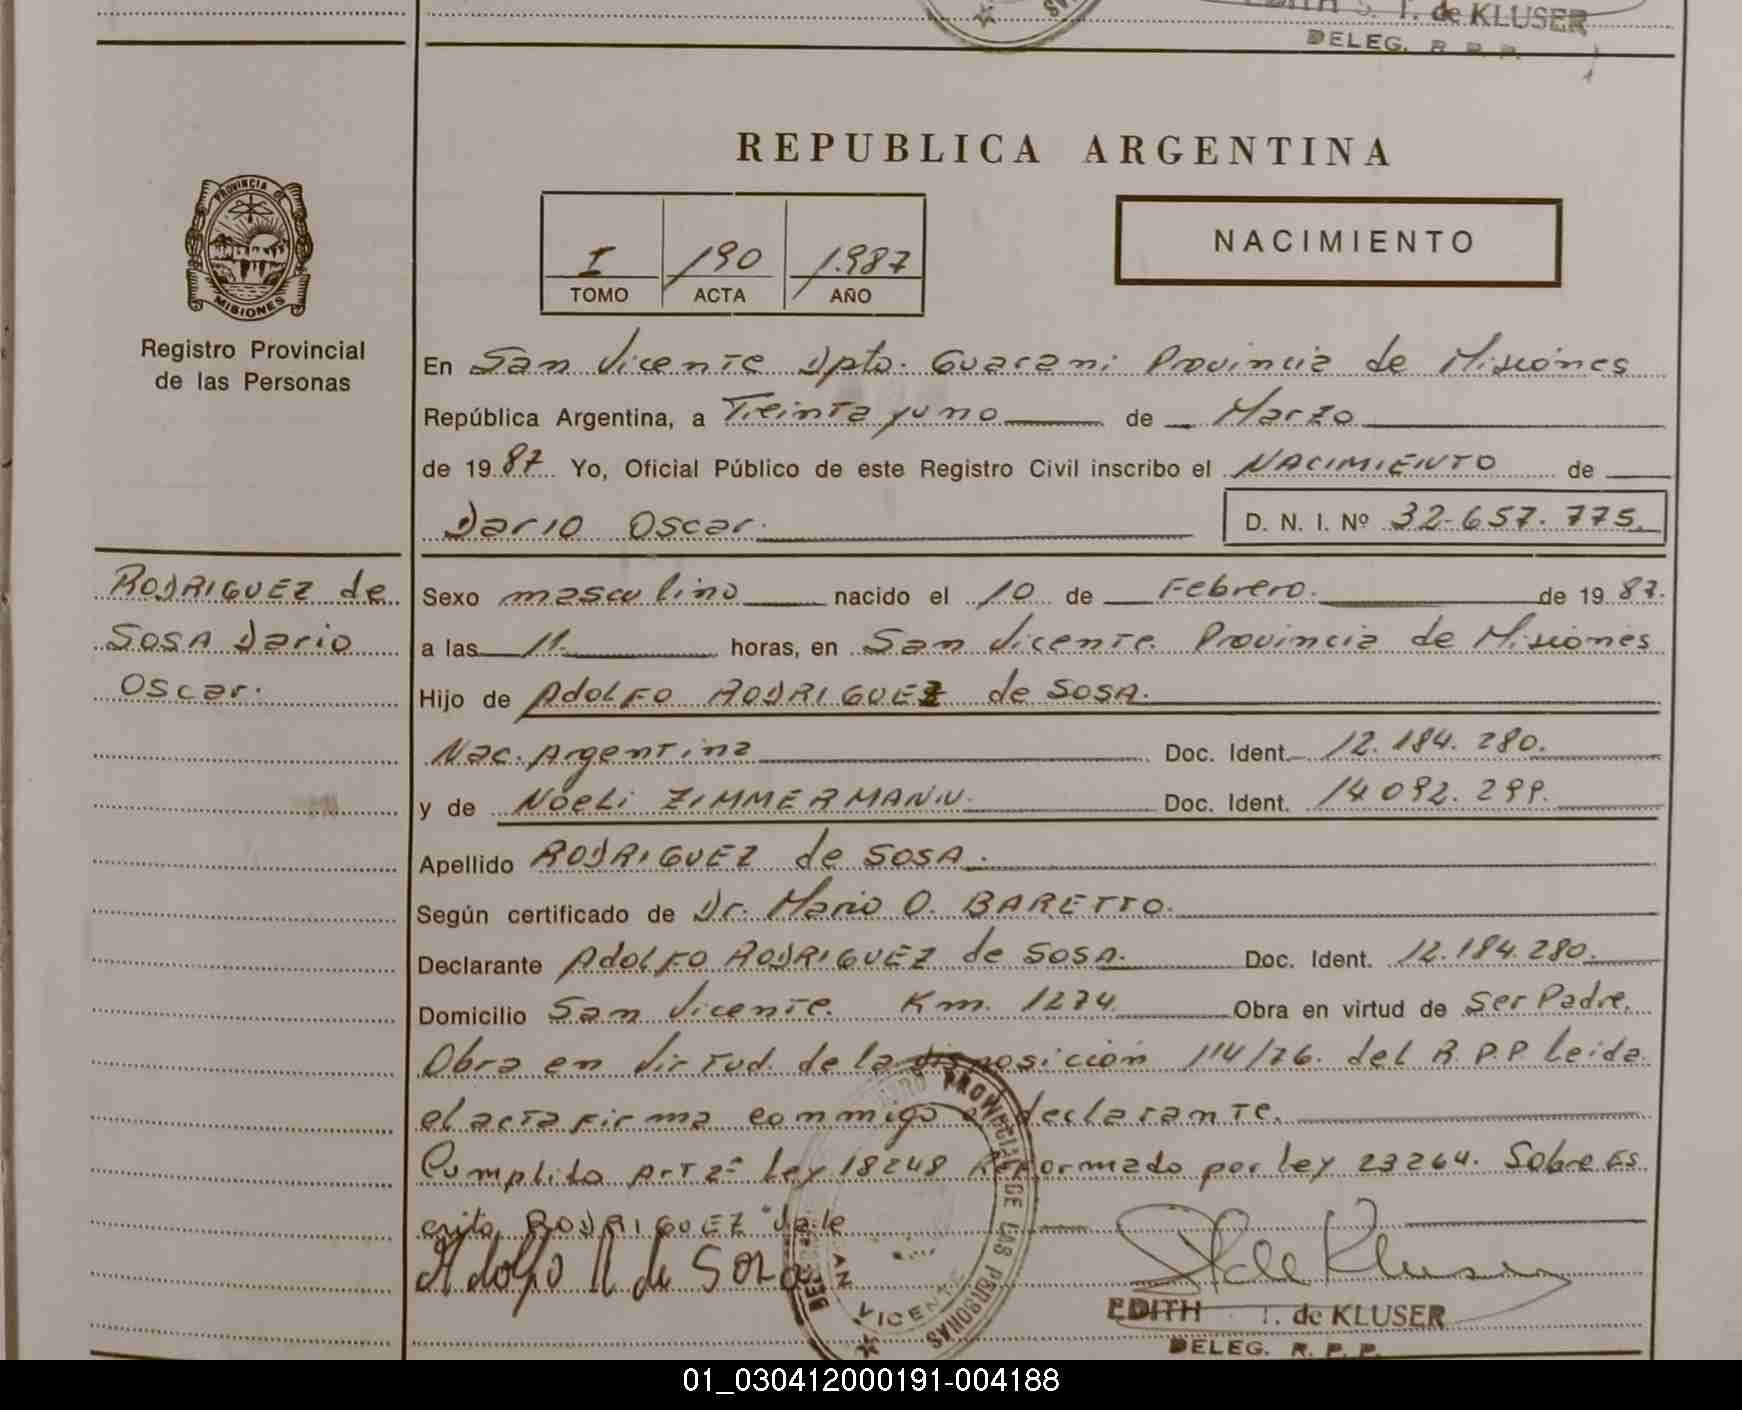 EDITH S. T. de KLUSER
DELEG. R. P. P.
REPUBLICA ARGENTINA
PROVINCIA DE
MISIONES
Registro Provincial
de las Personas
I 190 1.987
TOMO ACTA AÑO
NACIMIENTO
En San Vicente Dpto. Guarani Provincia de Misiones
República Argentina, a Treinta y uno de Marzo
de 19 87 Yo, Oficial Público de este Registro Civil inscribo el NACIMIENTO de
Dario Oscar. D. N. I. Nº 32-657.775.
RODRIGUEZ de
SOSA Dario
Oscar.
Sexo masculino nacido el 10 de Febrero. de 19 87.
a las 11. horas, en San Vicente. Provincia de Misiones
Hijo de Adolfo RODRIGUEZ de SOSA.
Nac. Argentina Doc. Ident. 12.184.280.
y de Noeli ZIMMERMANN. Doc. Ident. 14 092.299.
Apellido RODRIGUEZ de SOSA.
Según certificado de Dr. Mario O. BARETTO.
Declarante Adolfo RODRIGUEZ de SOSA. Doc. Ident. 12.184.280.
Domicilio San Vicente. Km. 1274 Obra en virtud de Ser Padre.
Obra en virtud. de la disposición 114/76. del R.P.P Leida
el acta firma conmigo el declarante.
Cumplido Art 2º Ley 18248 Reformado por Ley 23264. Sobre Es
crito RODRIGUEZ "Vale
Adolfo R de Soza
PROVINCIAL DE LAS PERSONAS
SAN VICENTE
EDITH T. de KLUSER
DELEG. R. P. P.
01_030412000191-004188